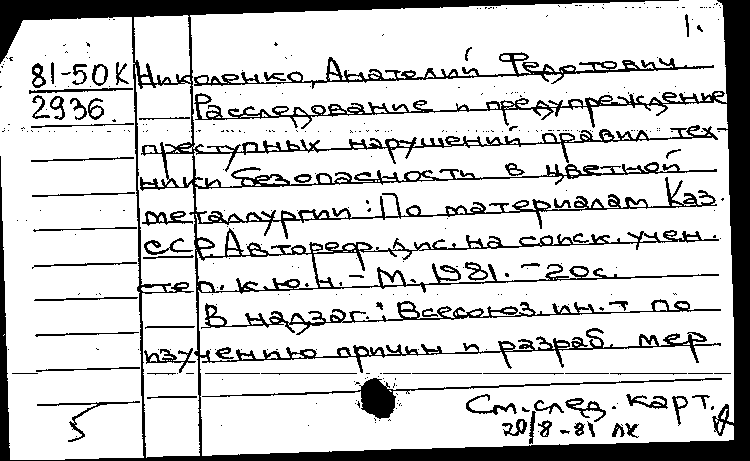 1.
81-50К Николенко, Анатолий Федотович.
2936. Расследование и предупреждение
преступных нарушений правил тех-
ники безопасности в цветной
металлургии: По материалам Каз.
ССР. Автореф. дис. на соиск. учен.
степ. к.ю.н. - М., 1981. - 20 с.
В надзаг.: Всесоюз. ин-т по
изучению причин и разраб. мер
См. след. карт.
5
20/8-81 ЛК